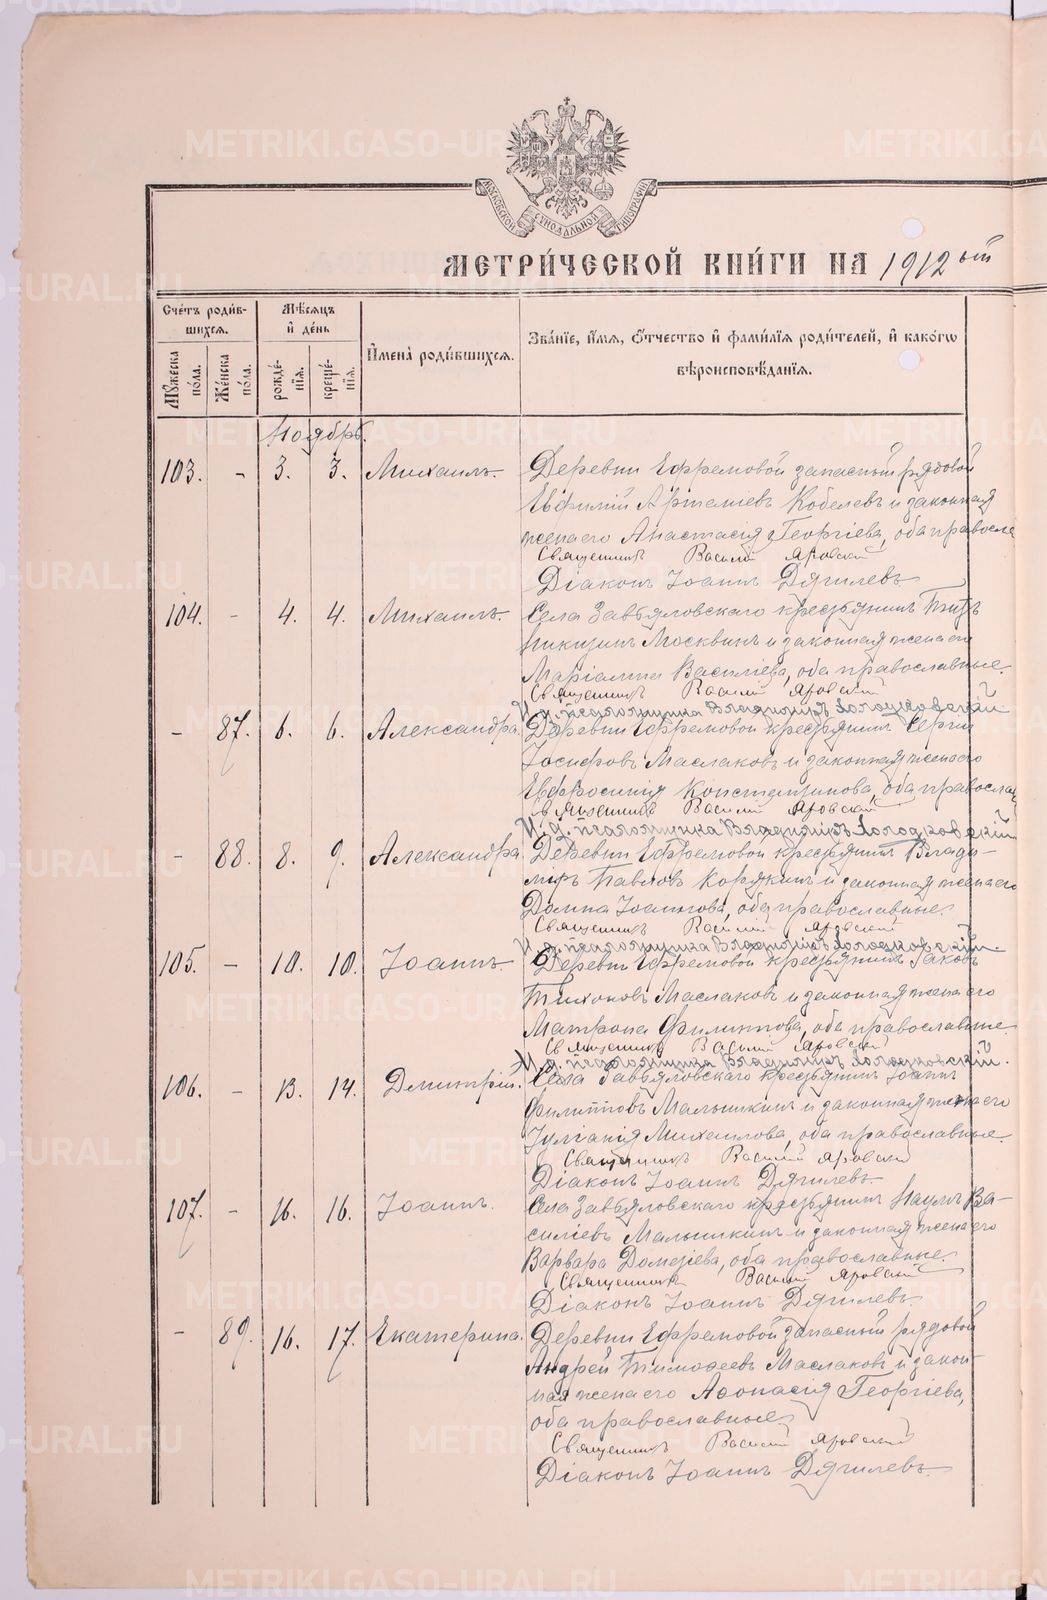 МОСКОВСКОЙ СѴНОДАЛЬНОЙ ТИПОГРАФІИ
МЕТРИ́ЧЕСКОЙ КНИ́ГИ НА 1912 ый
Сче́тъ роди́вшихся.
Мѣ́сяцъ и҆ де́нь
И҆мена̀ роди́вшихся.
Зва́нїе, и҆́мя, ѻ҆́тчество и҆ фами́лїя роди́телей, и҆ како́гѡ вѣроисповѣ́данїя.
Мꙋ́жеска по́ла.
Же́нска по́ла.
рожде́нїя.
креще́нїя.
Ноябрь.
103. - 3. 3. Михаилъ. Деревни Ефремовой запасный рядовой
Евфимій Артемиевъ Кобелевъ и законная
жена его Анастасія Георгіева, оба правосла
Священникъ Василій Яровскій
Діаконъ Іоаннъ Дягилевъ
104. - 4. 4. Михаилъ. Села Завьяловскаго крестьянинъ Титъ
Никитинъ Москвинъ и законная жена его
Маріамна Василіева, оба православные.
Священникъ Василій Яровскій
И. д. псаломщика Владиміръ Холодковскій
- 87. 6. 6. Александра. Деревни Ефремовой крестьянинъ Сергій
Іосифовъ Маслаковъ и законная жена его
Евфросинія Константинова, оба православ
Священникъ Василій Яровскій
И. д. псаломщика Владиміръ Холодковскій
- 88. 8. 9. Александра. Деревни Ефремовой крестьянинъ Влади-
міръ Павловъ Корякинъ и законная жена его
Домна Іоаннова, оба православные.
Священникъ Василій Яровскій
И. д. псаломщика Владиміръ Холодковскій.
105. - 10. 10. Іоаннъ. Деревни Ефремовой крестьянинъ Іаковъ
Тихоновъ Маслаковъ и законная жена его
Матрона Филиппова, оба православные.
Священникъ Василій Яровскій
И. д. псаломщика Владиміръ Холодковскій.
106. - 13. 14. Димитрій. Села Завьяловскаго крестьянинъ Іоаннъ
Филипповъ Мальшкинъ и законная жена его
Іуліанія Михаилова, оба православные.
Священникъ Василій Яровскій
Діаконъ Іоаннъ Дягилевъ.
107. - 16. 16. Іоаннъ. Села Завьяловскаго крестьянинъ Наумъ Ва-
силіевъ Мальшкинъ и законная жена его
Варвара Дометіева, оба православные.
Священникъ Василій Яровскій
Діаконъ Іоаннъ Дягилевъ.
- 89. 16. 17. Екатерина. Деревни Ефремовой запасный рядовой
Андрей Тимофеевъ Маслаковъ и закон-
ная жена его Афонасія Георгіева,
оба православные.
Священникъ Василій Яровскій
Діаконъ Іоаннъ Дягилевъ
METRIKI.GASO-URAL.RU